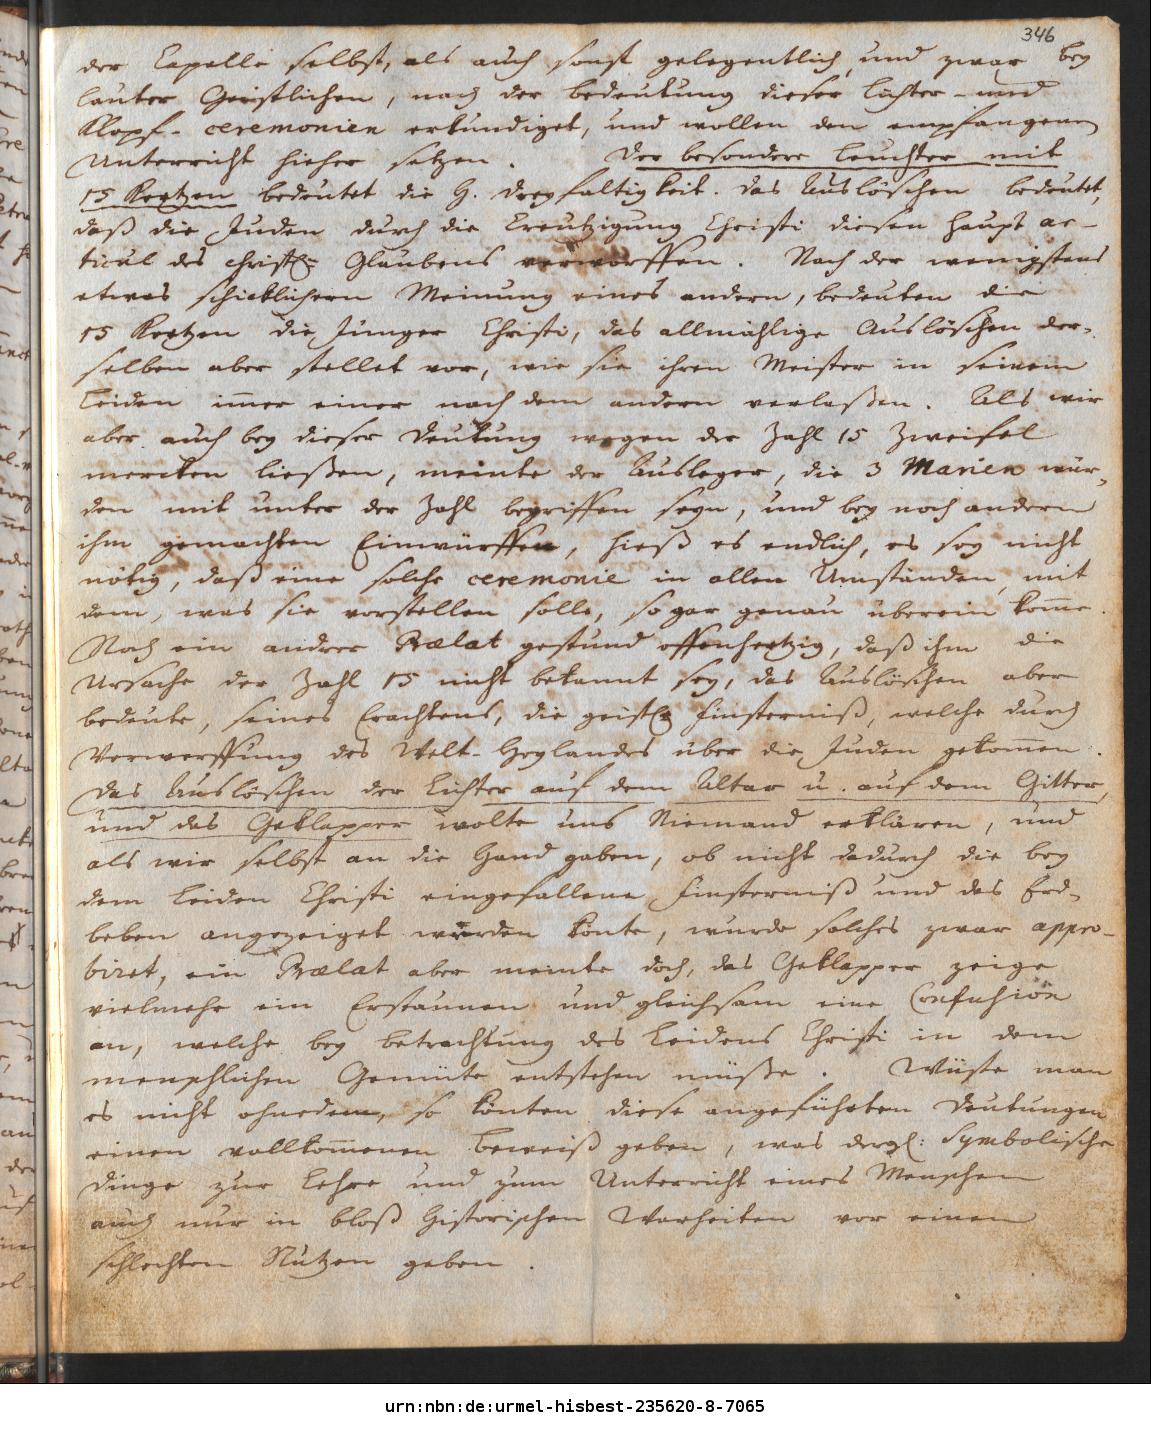 346
der Capelle selbst, als auch sonst gelegentlich, und zwar bey
lauter Geistlichen, nach der bedeutung dieser Lichter- und
Klopf-ceremonien erkundiget, und wollen den empfangenen
Unterricht hieher setzen. Der besondere Leuchter mit
15 Kertzen bedeutet die H. Dreyfaltigkeit. das Auslöschen bedeutet,
daß die Juden durch die Creutzigung Christi diesen Haupt ar-
ticul des christl. Glaubens verworffen. Nach der wenigstens
etwas schicklichern Meinung eines andern, bedeuten die
15 Kertzen die Jünger Christi, das allmählige Auslöschen der-
selben aber stellet vor, wie sie ihren Meister in seinem
Leiden im̅er einer nach dem andern verlaßen. Als wir
aber auch bey dieser Deutung wegen der Zahl 15 Zweifel
mercken ließen, meinte der Ausleger, die 3 Marien wür-
den mit unter der Zahl begriffen seyn, und bey noch andern
ihm gemachten Einwürffen, hieß es endlich, es sey nicht
nötig, daß eine solche ceremonie in allen Umständen mit
dem, was sie vorstellen solle, so gar genau überein kom̅e.
Noch ein andrer Prælat gestund offenhertzig, daß ihm die
Ursache der Zahl 15 nicht bekannt sey, das Auslöschen aber
bedeute, seines Erachtens, die geistl. Finsterniß, welche durch
Verwerffung des Welt-Heylandes über die Juden gekom̅en.
Das Auslöschen der Lichter auf dem Altar u. auf dem Gitter,
und das Geklapper wolte uns Niemand erklären, und
als wir selbst an die Hand gaben, ob nicht dadurch die bey
dem Leiden Christi eingefallene Finsterniß und das Erd-
beben angezeiget werden könte, wurde solches zwar appro-
biret, ein Prælat aber meinte doch, das Geklapper zeige
vielmehr ein Erstaunen und gleichsam eine Confusion
an, welche bey betrachtung des Leidens Christi in dem
menschlichen Gemüte entstehen müße. Wüste man
es nicht ohnedem, so könten diese angeführten Deutungen
einen vollkom̅enen Beweiß geben, was dergl: Symbolische
Dinge zur Lehre und zum Unterricht eines Menschen
auch nur in bloß Historischen Warheiten vor einen
schlechten Nutzen geben.
urn:nbn:de:urmel-hisbest-235620-8-7065